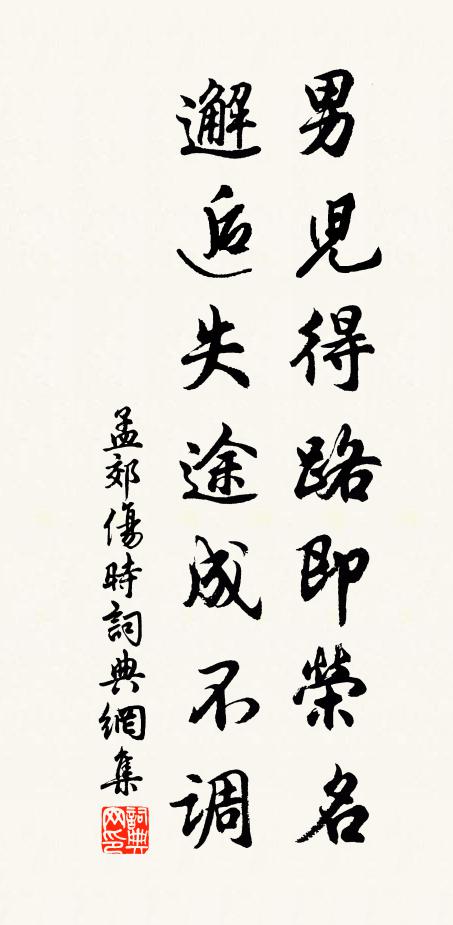 男児得路即榮名
邂逅失途成不调
孟郊傷時詞典網集
詞典網印